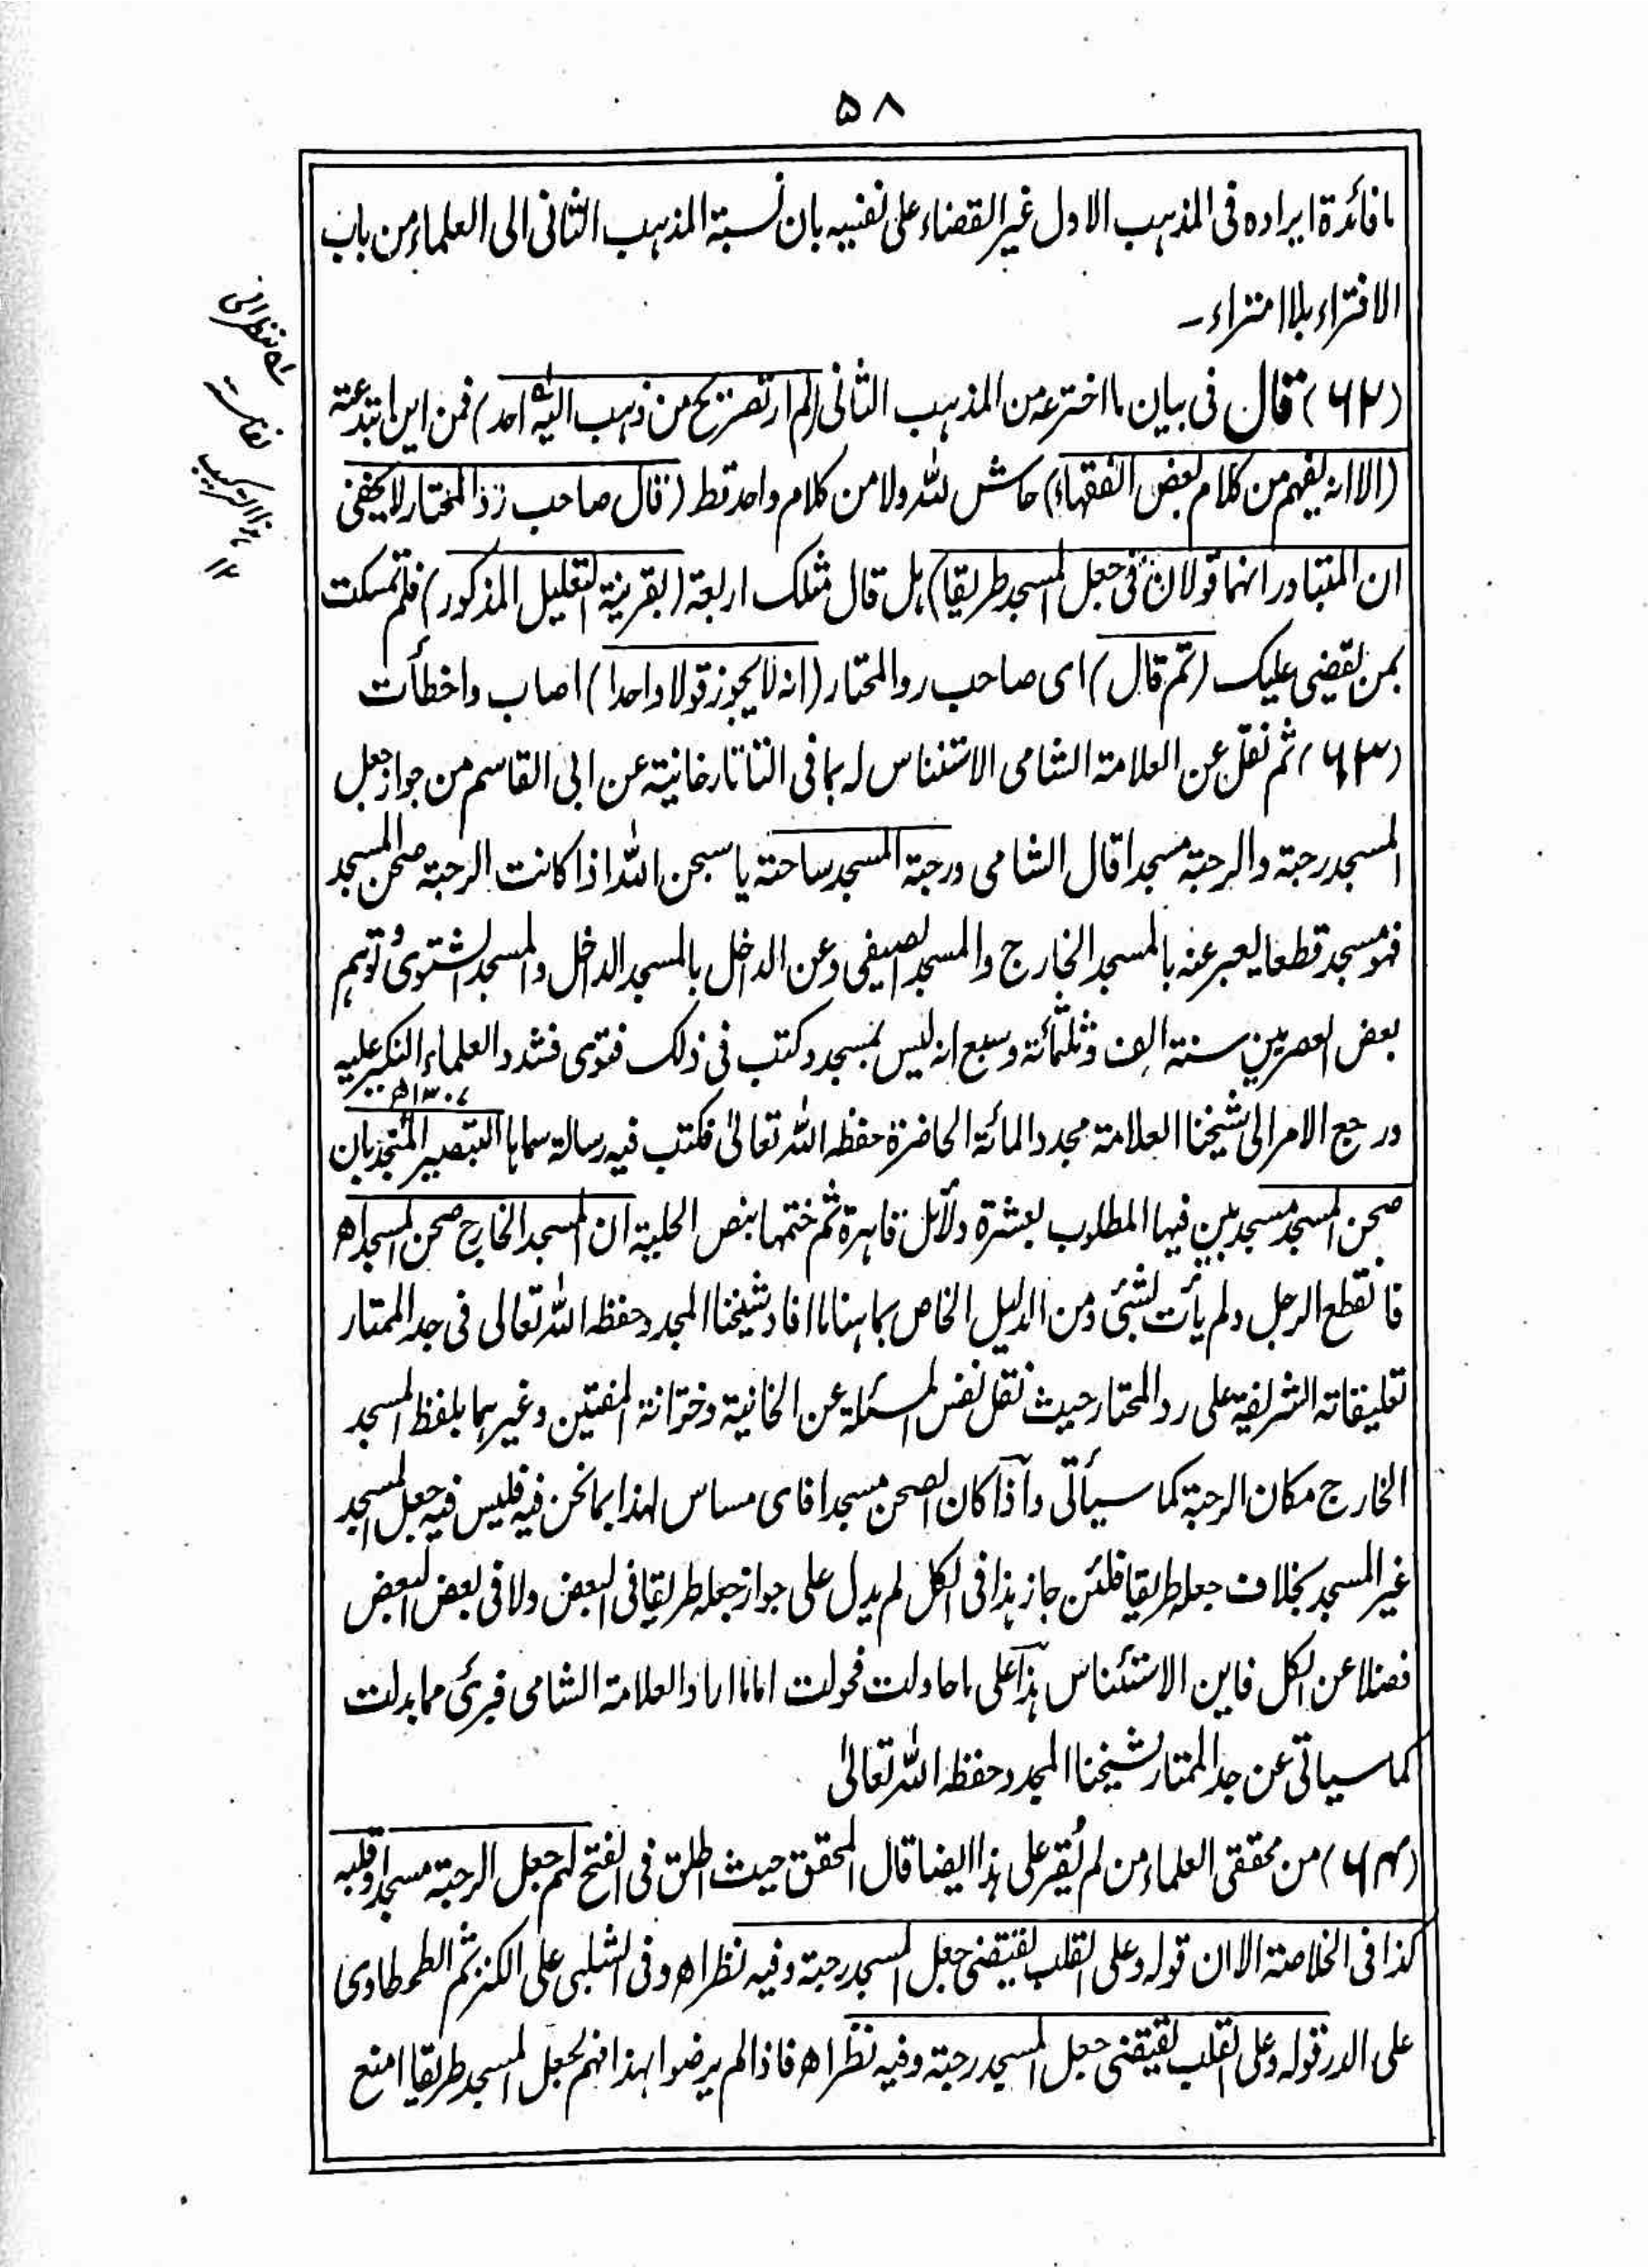 ۵۸
ما فائدة ايراده فى المذهب الاول غير القضاء على نفسه بان نسبة المذهب الثانى الى العلماء من باب
الافتراء بلا امتراء ـ
(۶۲) قال فى بيان ما اخترعه من المذهب الثانى (لم ار تصريح من ذهب اليه احد) فمن اين ابتدعته
(الا انه يفهم من كلام بعض الفقهاء) حاش لله ولا من كلام واحد قط (قال صاحب رد المختار لا يخفى
ان المتبادر انهما قولان فى جعل المسجد طريقا) بل قال مثلك اربعة (بقرينة التعليل المذكور) فلم تمسكت
بمن يقضى عليك (ثم قال) اى صاحب رد المحتار (انه لا يجوز قولا واحدا) اصاب واخطأت
(۶۳) ثم نقل عن العلامة الشامى الاستئناس له بما فى التاتارخانية عن ابى القاسم من جواز جعل
المسجد رحبة والرحبة مسجدا قال الشامى ورحبة المسجد ساحته يا سبحن الله اذا كانت الرحبة صحن المسجد
فهو مسجد قطعا يعبر عنه بالمسجد الخارج والمسجد الصيفى وعن الداخل بالمسجد الداخل والمسجد الشتوى وتوهم
بعض العصريين سنة الف وثلثمائة وسبع انه ليس بمسجد وكتب فى ذلك فتوى فشدد العلماء النكير عليه
ورجع الامر الى شيخنا العلامة مجدد المائة الحاضرة حفظه الله تعالىٰ فكتب فيه رسالة سماها التبصير المنجد بان
۱۳۰۷ھ
صحن المسجد مسجد بين فيها المطلوب بعشرة دلائل قاهرة ثم ختمها بنص الحلية ان المسجد الخارج صحن المسجد اه
فانقطع الرجل ولم يأت بشئ ومن الدليل الخاص بما هنا ما افاد شيخنا المجدد حفظه الله تعالى فى جد الممتار
تعليقاته الشريفة على رد المحتار حيث نقل نفس المسئلة عن الخانية وخزانة المفتين وغيرهما بلفظ المسجد
الخارج مكان الرحبة كما سيأتى واذا كان الصحن مسجدا فاى مساس لهذا بما نحن فيه فليس فيه جعل المسجد
غير المسجد بخلاف جعله طريقا فلئن جاز هذا فى الكل لم يدل على جواز جعله طريقا فى البعض ولا فى بعض البعض
فضلا عن الكل فاين الاستئناس هذا على ما حاولت فحولت اما ما اراد العلامة الشامى فبرئ مما بدلت
كما سياتى عن جد الممتار لشيخنا المجدد حفظه الله تعالىٰ
(۶۴) من محققى العلماء من لم يُقِر على هذا ايضا قال المحقق حيث اطلق فى الفتح لهم جعل الرحبة مسجدا وقلبه
كذا فى الخلاصة الا ان قوله وعلى القلب يقتضى جعل المسجد رحبة وفيه نظر اه وفى الشلبى على الكنز ثم الطحطاوى
على الدر قوله وعلى القلب يقتضى جعل المسجد رحبة وفيه نظر اه فاذا لم يرضوا بهذا فهم لجعل المسجد طريقا امنع